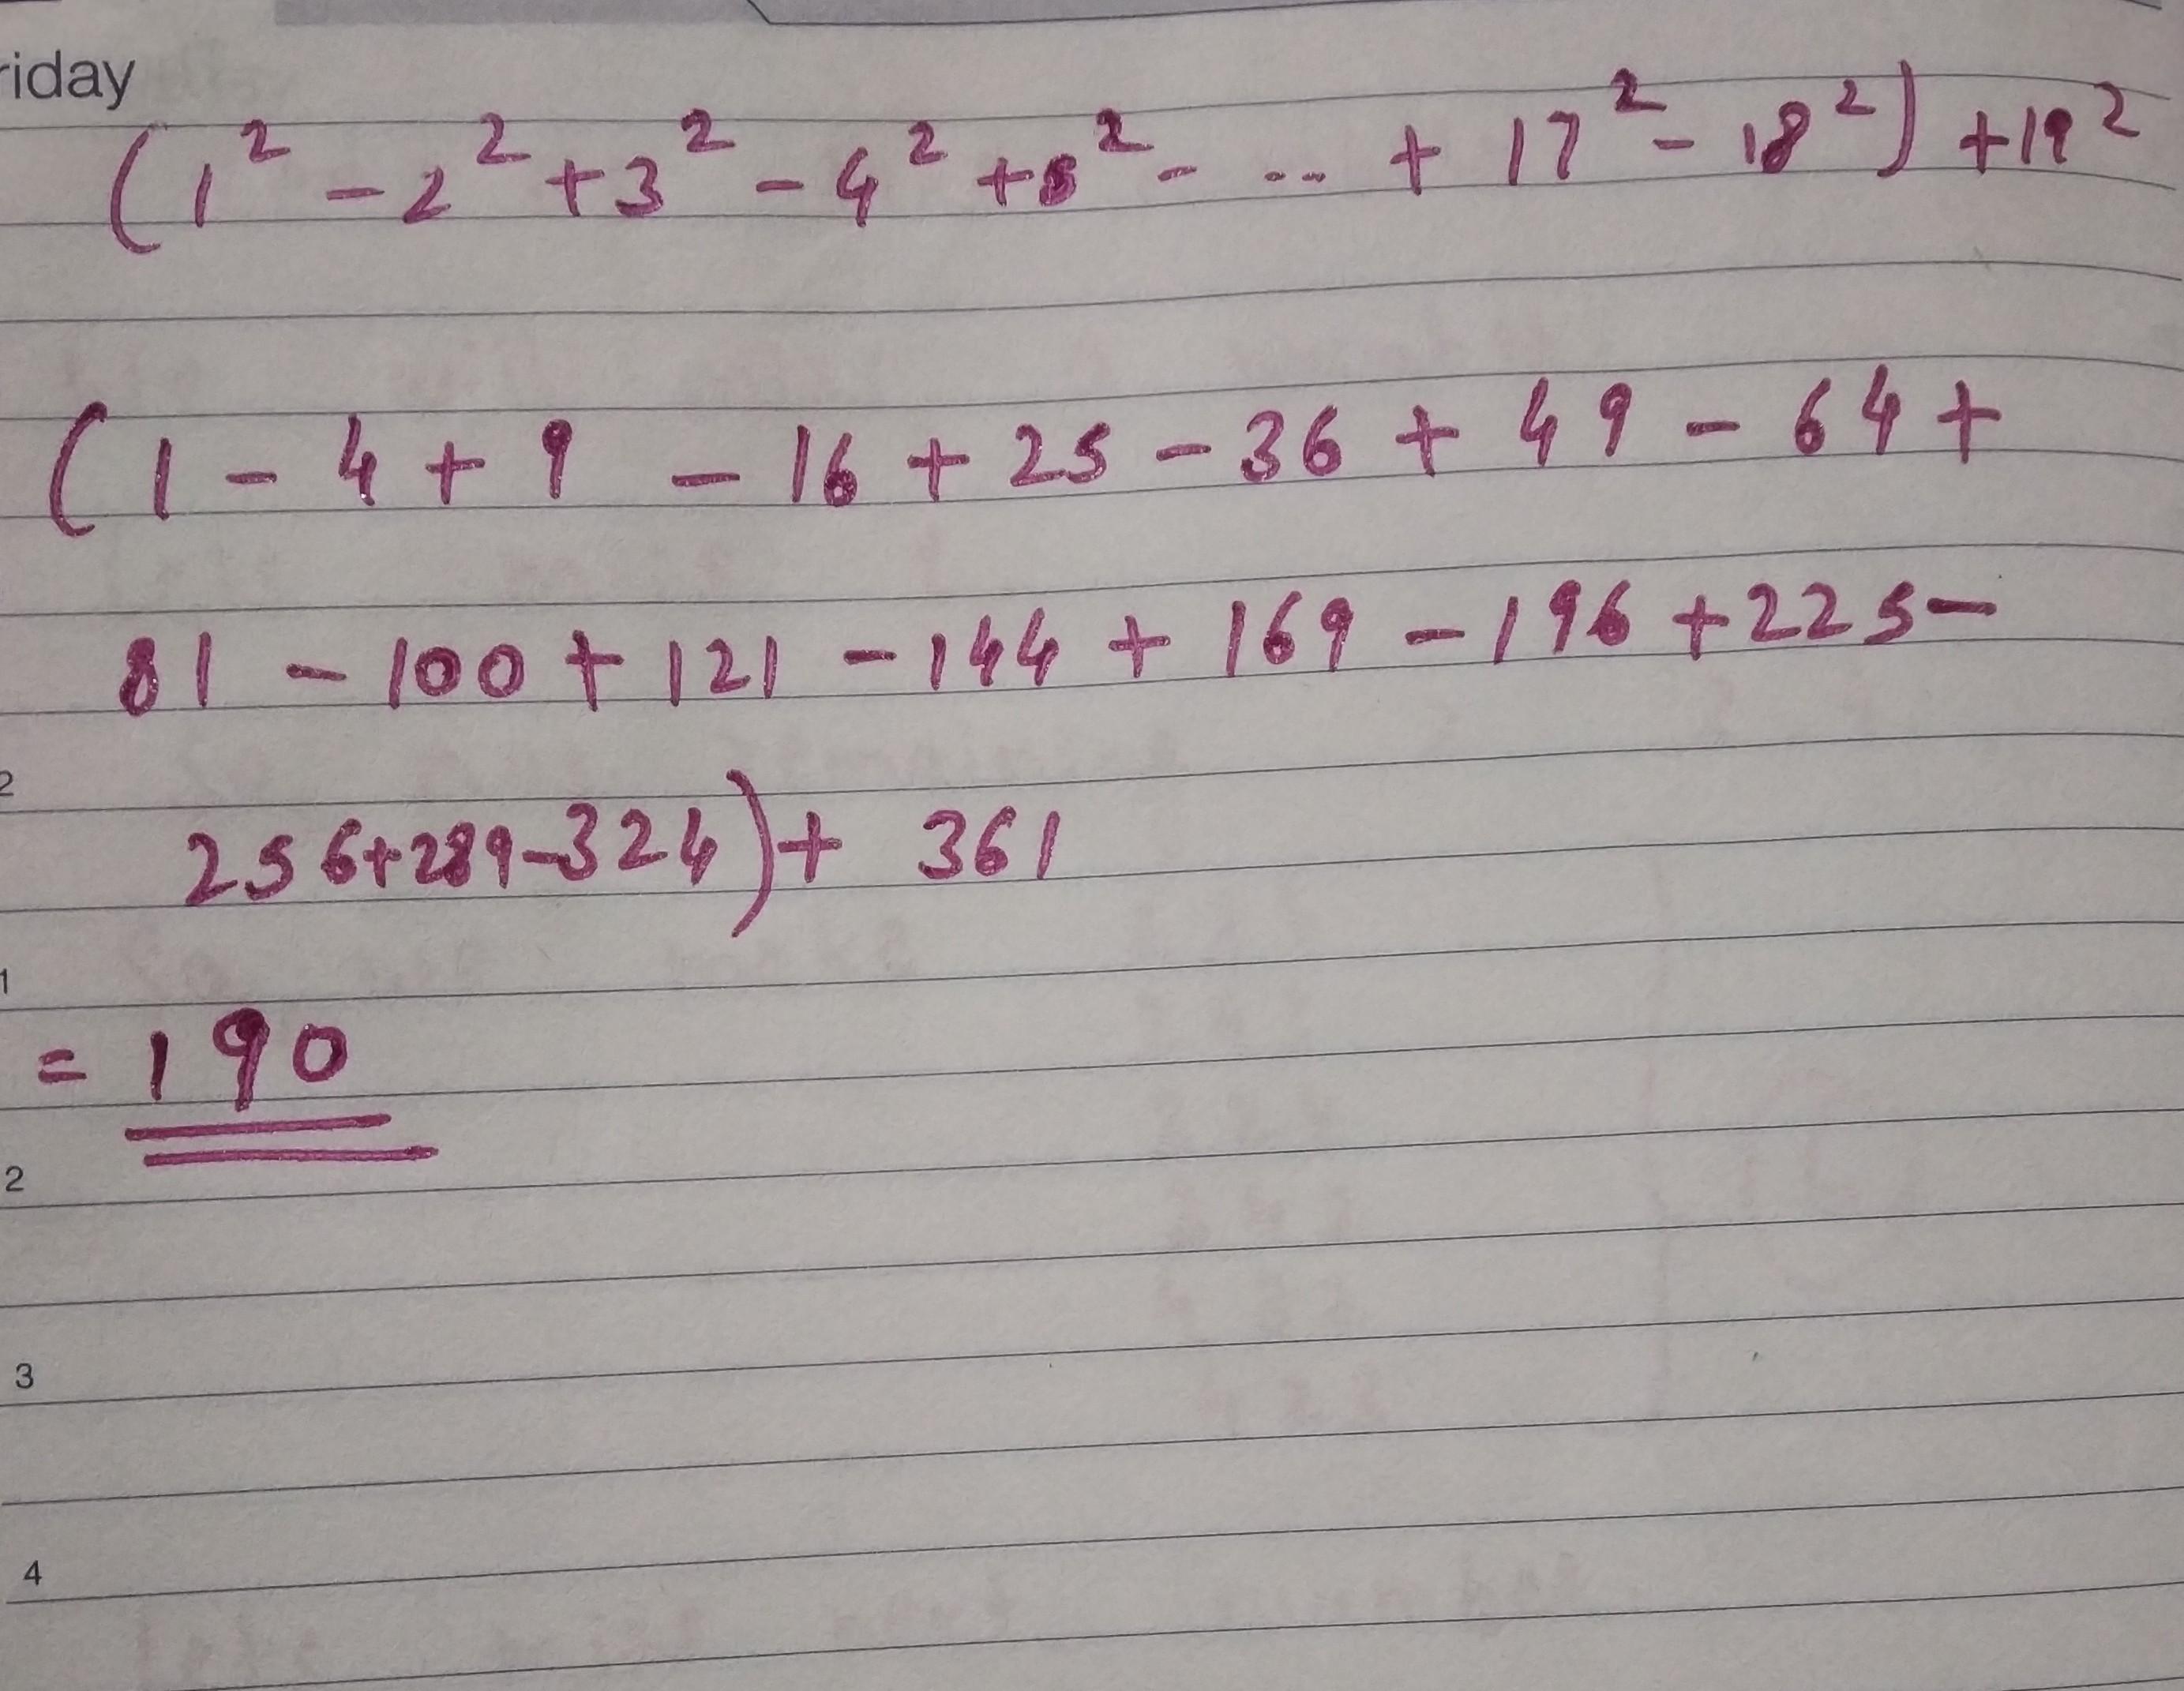 riday
(1² - 2² + 3² - 4² + 5² - ... + 17² - 18²) + 19²
(1 - 4 + 9 - 16 + 25 - 36 + 49 - 64 +
81 - 100 + 121 - 144 + 169 - 196 + 225 -
2
256 + 289 - 324) + 361
1
= 190
2
3
4